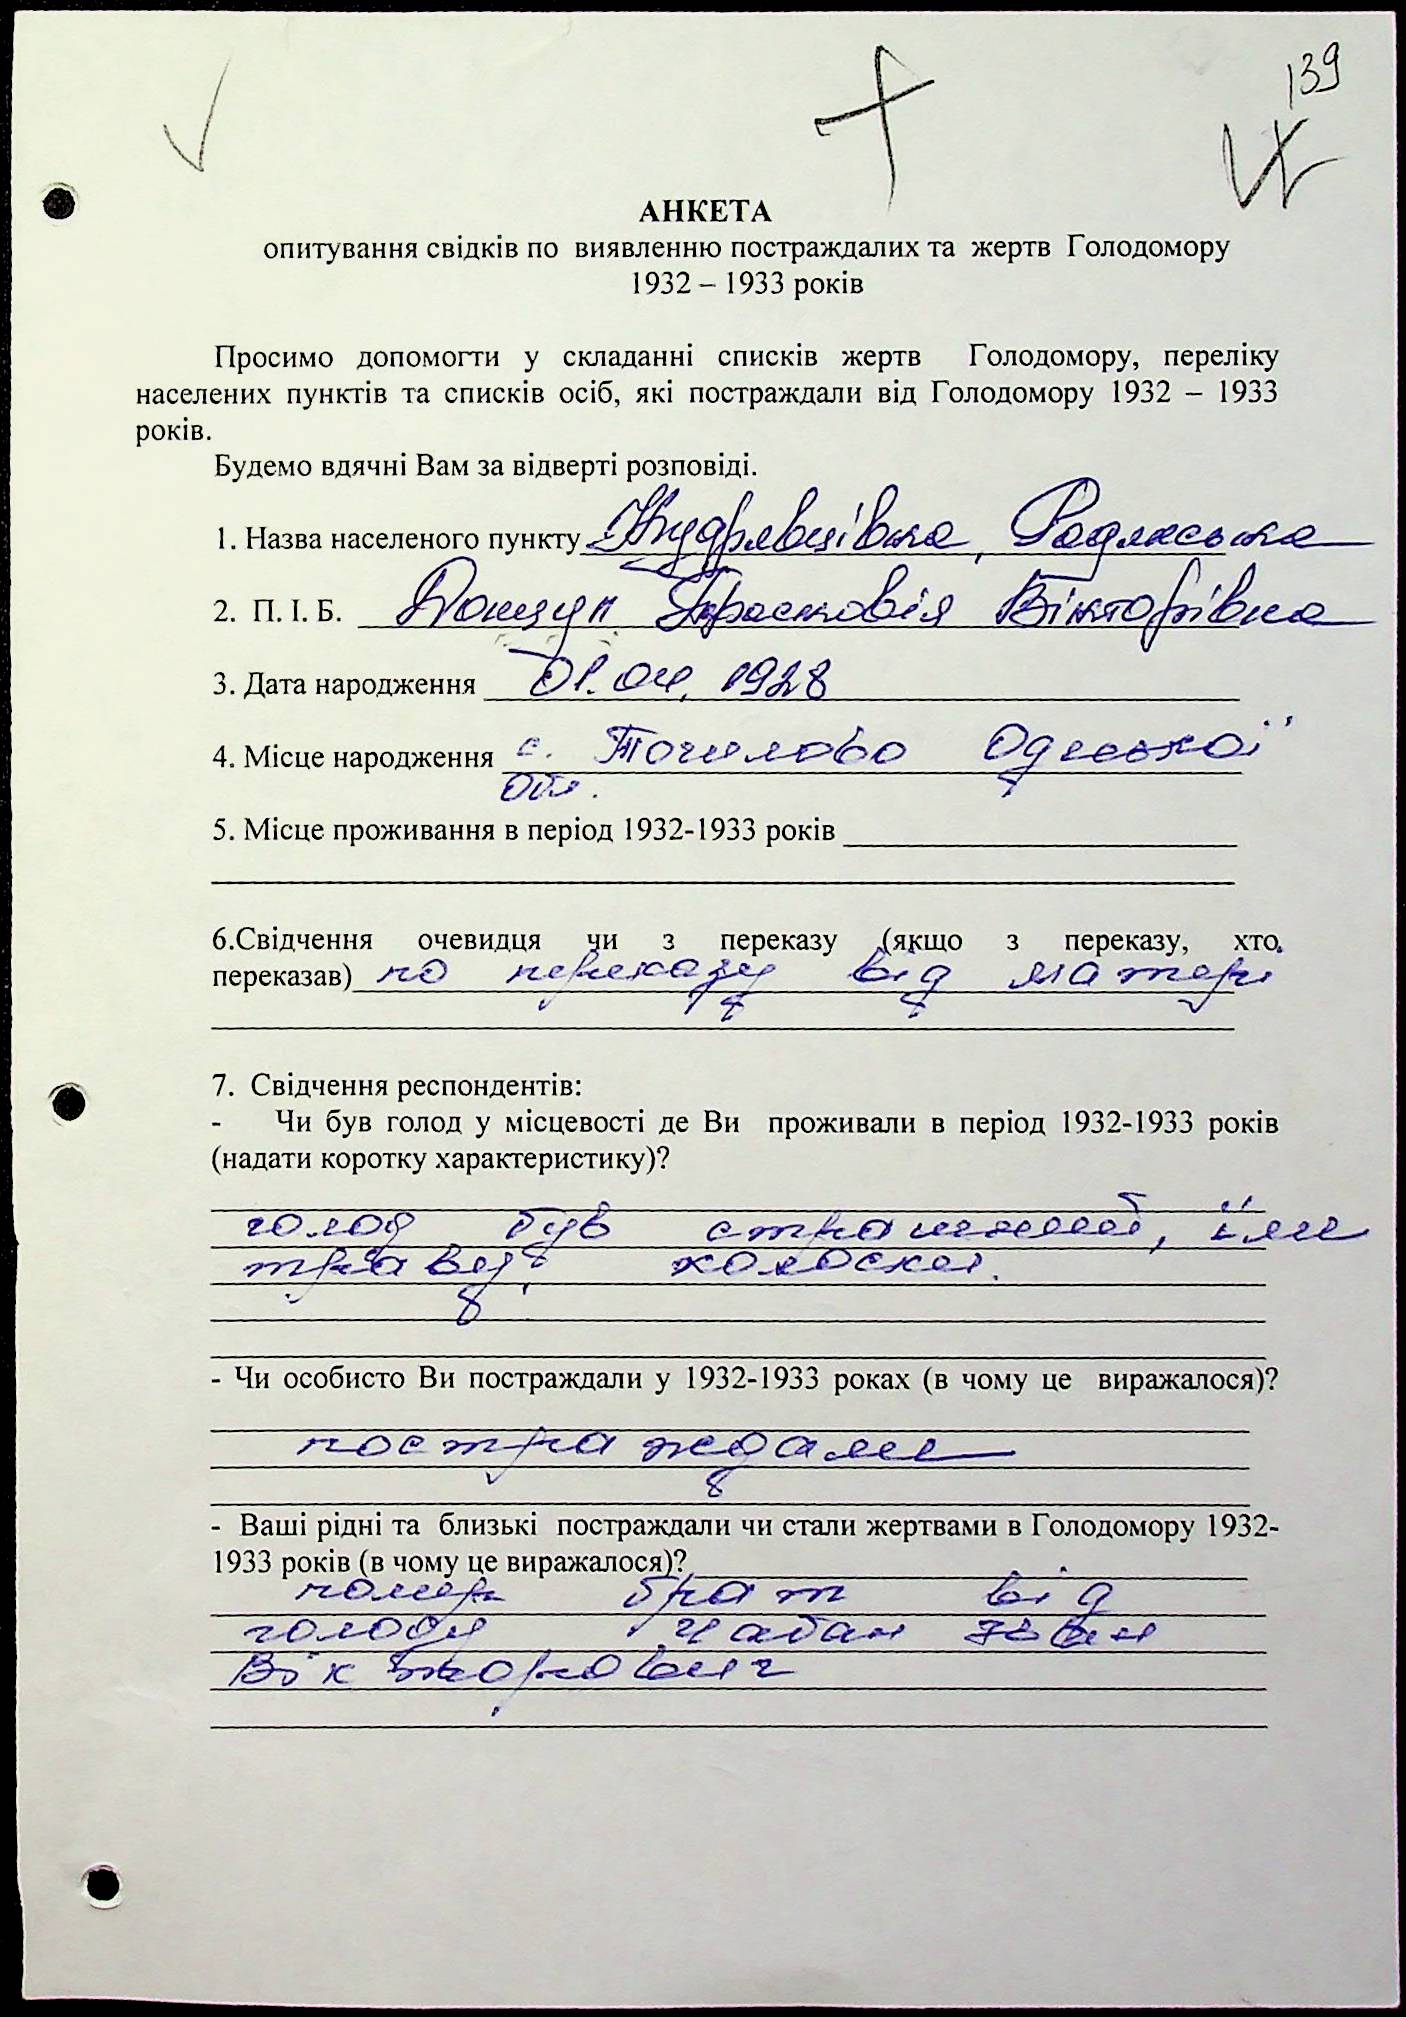 139
АНКЕТА
опитування свідків по виявленню постраждалих та жертв Голодомору
1932 – 1933 років
Просимо допомогти у складанні списків жертв Голодомору, переліку
населених пунктів та списків осіб, які постраждали від Голодомору 1932 – 1933
років.
Будемо вдячні Вам за відверті розповіді.
1. Назва населеного пункту Кудрявцівка,
2. П. І. Б. Прасковія Вікторівна
3. Дата народження 01.04.1928
4. Місце народження с. Точилово Одеської
обл.
5. Місце проживання в період 1932-1933 років
6.Свідчення очевидця чи з переказу (якщо з переказу, хто
переказав) по переказу від матері
7. Свідчення респондентів:
- Чи був голод у місцевості де Ви проживали в період 1932-1933 років
(надати коротку характеристику)?
голод був страшний, їли
траву, колоски.
- Чи особисто Ви постраждали у 1932-1933 роках (в чому це виражалося)?
постраждали
- Ваші рідні та близькі постраждали чи стали жертвами в Голодомору 1932-
1933 років (в чому це виражалося)?
помер брат від
голоду Чабан Іван
Вікторович